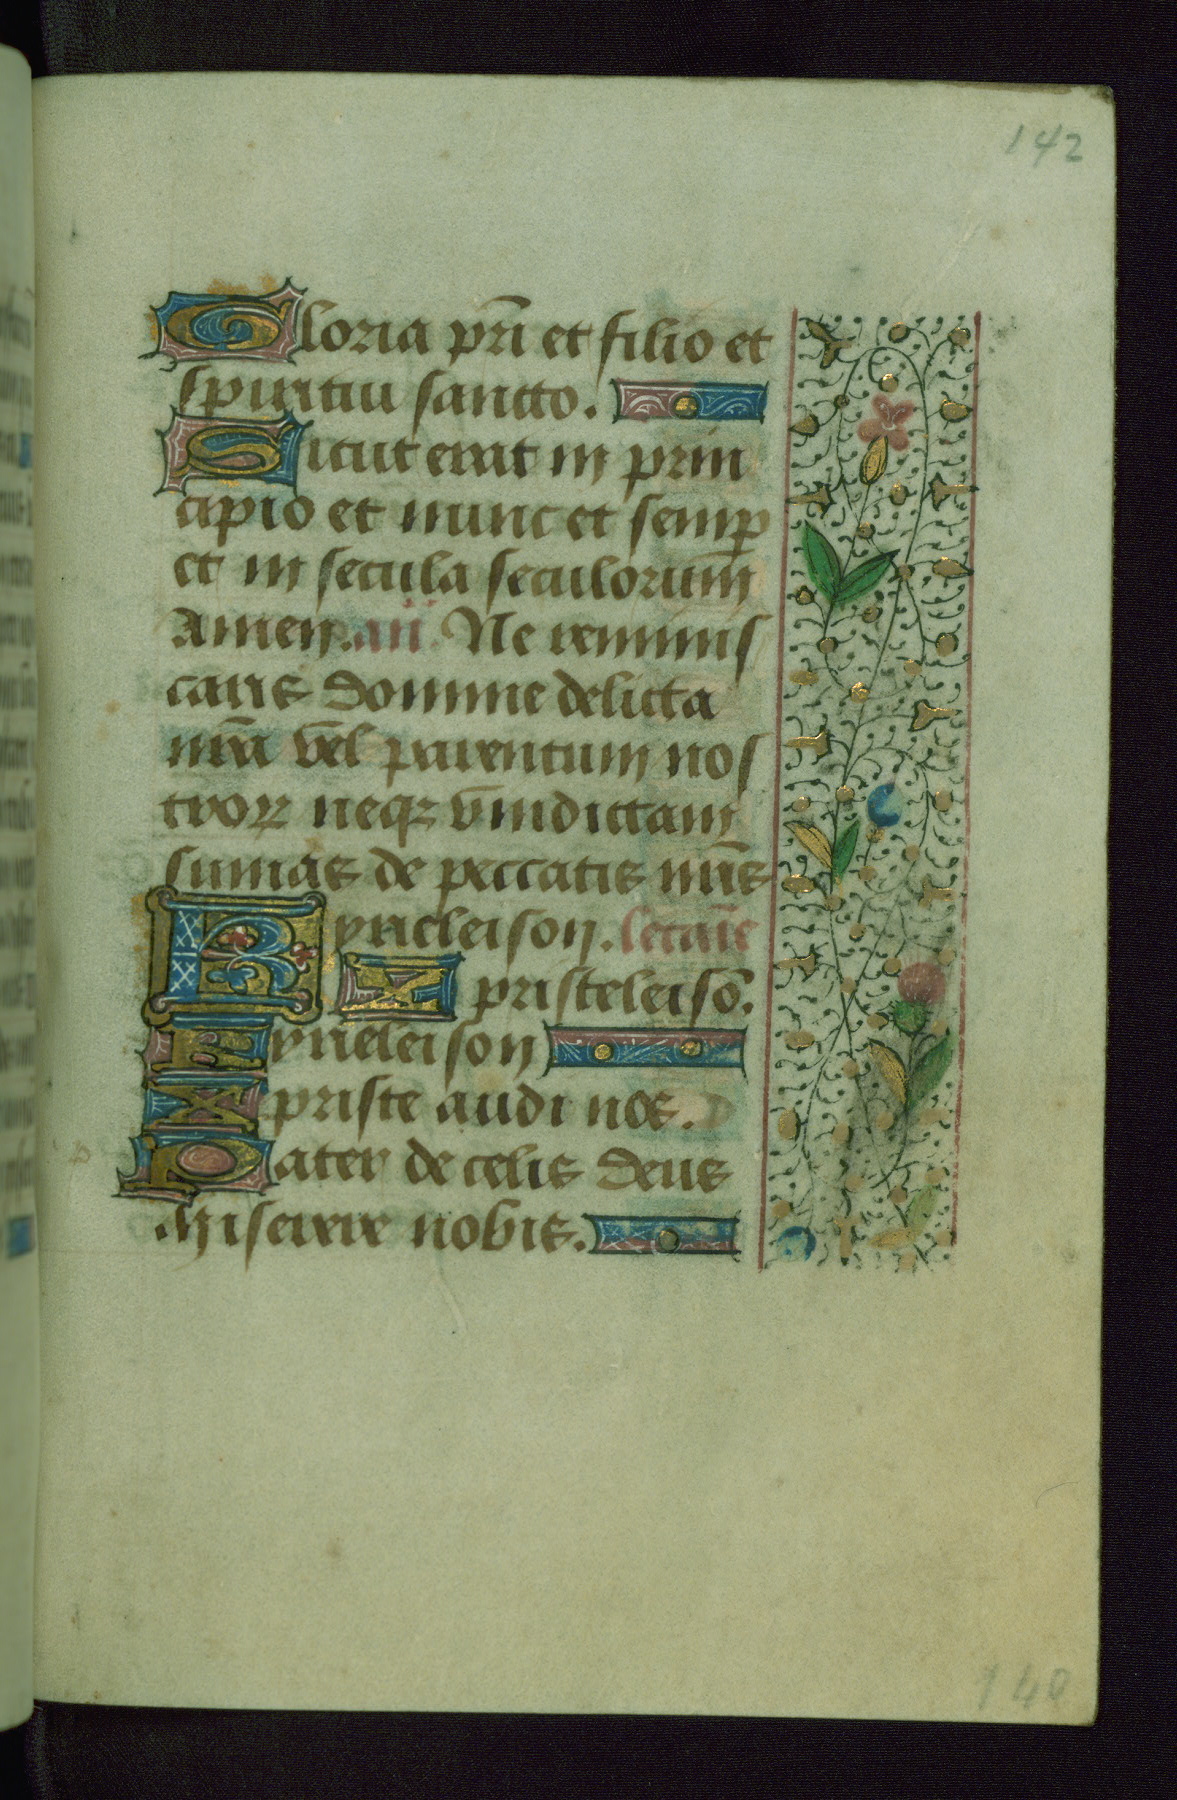 142
Gloria pr̄i et filio et
spiritui sancto.
Sicut erat in prin
cipio et nunc et semp̱
et in secula seculorum
Amen. an̄. Ne reminis
caris domine delicta
nr̄a vel parentum nos
troꝝ neqꝫ vindictam
sumas de peccatis nr̄is
Kyrieleison. letanie
Xpristeleisō.
Kyrieleison
Xpriste audi nos.
Pater de celis deus
Miserere nobis.
140